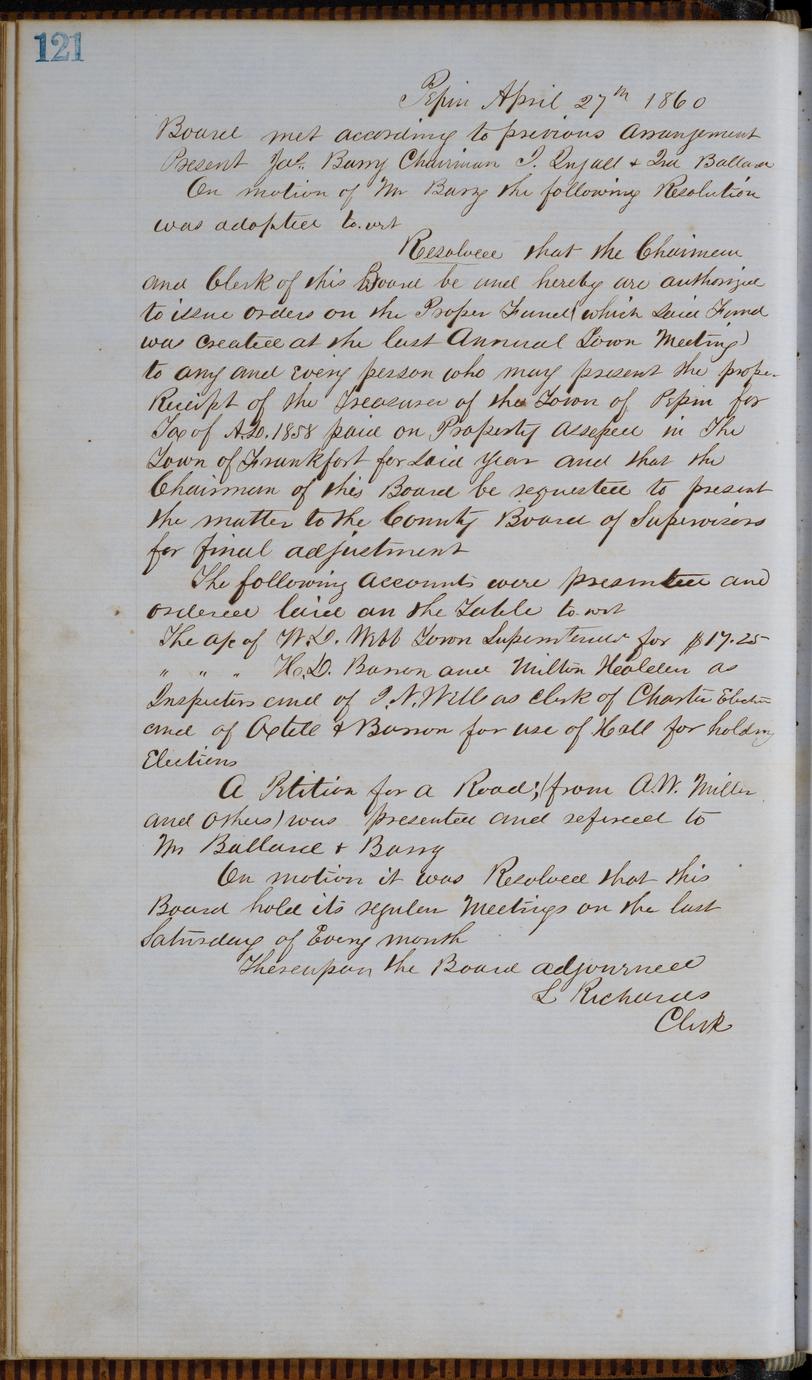 121
Pepin April 27th 1860
Board met according to previous arrangement
Present Jas. Barry Chairman I. & Ira Ballard
On motion of Mr Barry the following Resolution
was adopted to.wit
Resolved that the Chairman
and Clerk of this Board be and hereby are authorized
to issue orders on the Proper Fund (which said Fund
was created at the last Annual Town Meeting)
to any and every person who may present the proper
Receipt of the Treasurer of the Town of Pepin for
Tax of A.D. 1858 paid on Property assessed in The
Town of Frankfort for said year and that the
Chairman of this Board be requested to present
the matter to the County Board of Supervisors
for final adjustment
The following accounts were presented and
ordered laid on the Table to.wit
The a/c of W.D. Webb Town Superintendent for $17.25
" " " H.D. Barron and Milton as
Inspectors and of I.N. Wells as clerk of Charter Election
and of Axtell & Barron for use of Hall for holding
Elections
A Petition for a Road; (from A.W. Miller
and others) was presented and referred to
Mr Ballard & Barry
On motion it was Resolved that this
Board hold its regular Meetings on the last
Saturday of Every month
Thereupon the Board adjourned
L Richards
Clerk